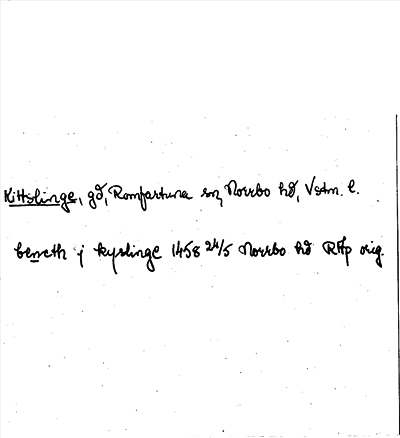 Kittslinge, gd, Romfartuna sn, Norrbo hd, Vstm. l.
beneth j kyslinge 1458 24/5 Norrbo hd RAp orig.